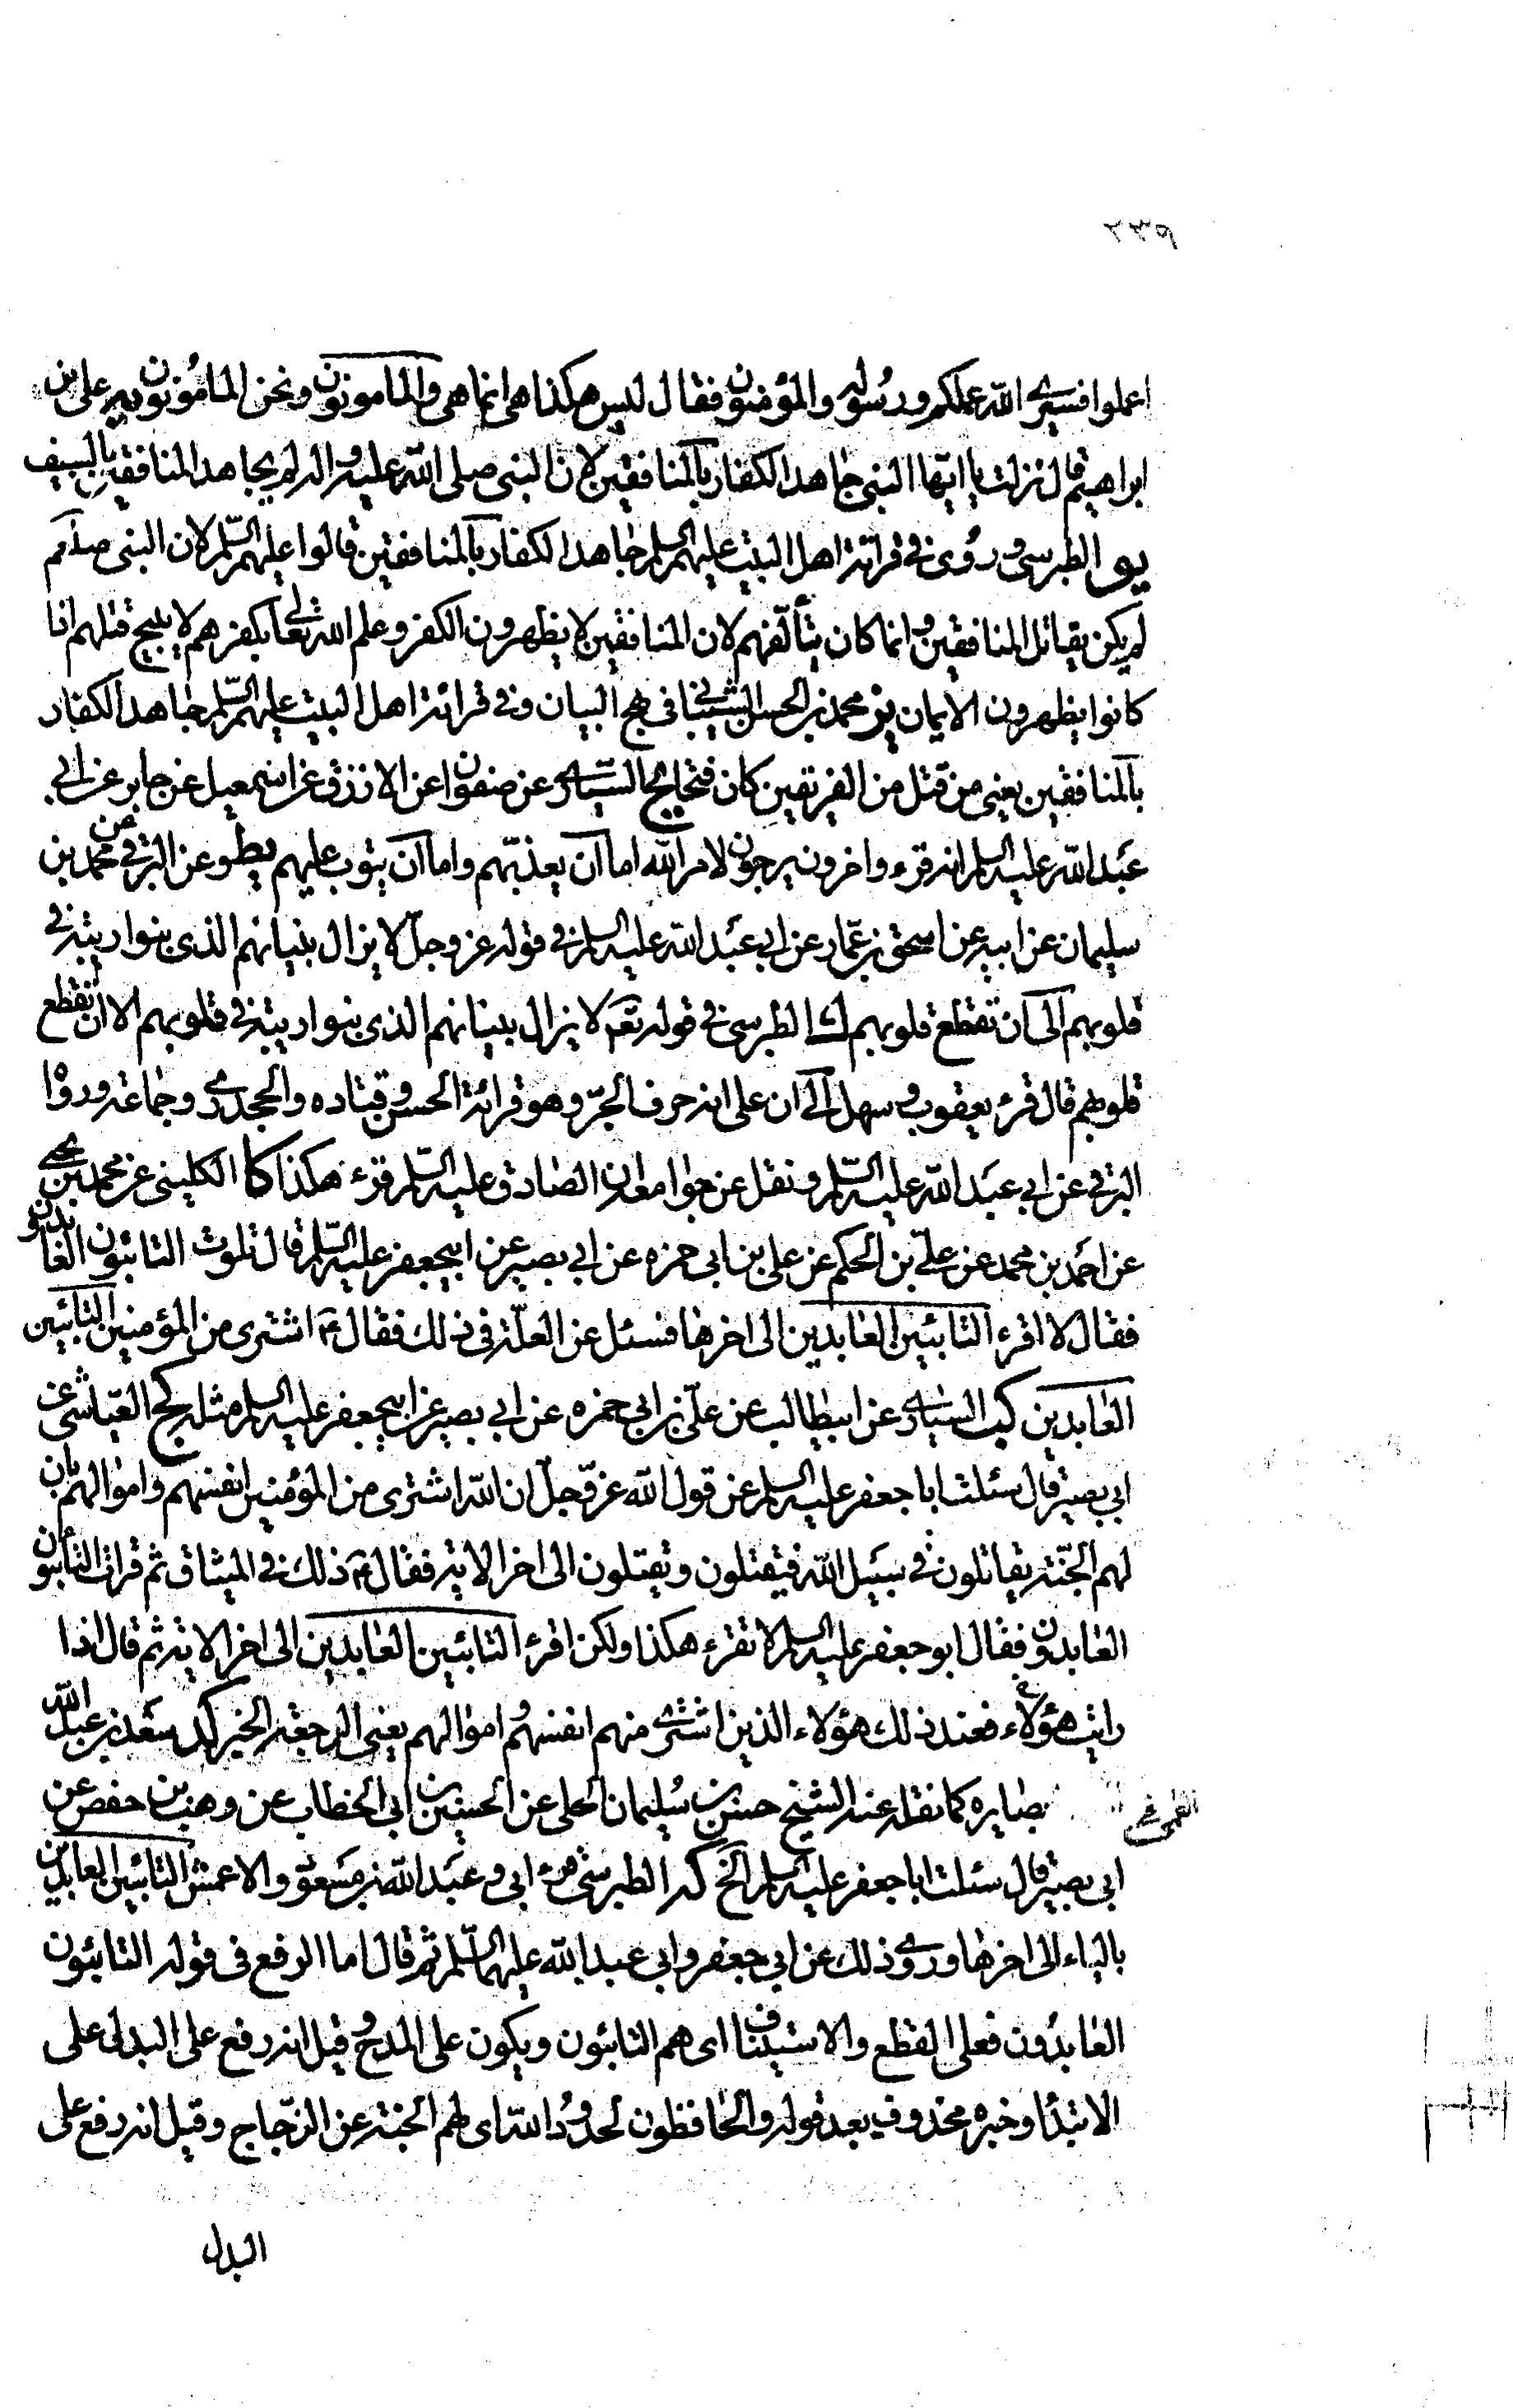 ٢٣٩
اعملوا فسيرى الله عملكم ورسوله والمؤمنون فقال ليس هكذا هى انما هى والمامونون ونحن المامونون يه على بن
ابراهيم قال نزلت يا ايها النبى جاهد الكفار بالمنافقين لان النبى صلى الله عليه واله لم يجاهد المنافقين بالسيف
يو الطبرسى وروى فى قرائة اهل البيت عليهم السلم جاهد الكفار بالمنافقين قالوا عليهم السلم لان النبى صلعم
لم يكن يقاتل المنافقين وانما كان يتألفهم لان المنافقين لا يظهرون الكفر وعلم الله تعالى بكفرهم لا يبيح قتلهم اذا
كانوا يظهرون الايمان يز محمد بن الحسن الشيبانى فى نهج البيان وفى قرائة اهل البيت عليهم السلم جاهد الكفار
بالمنافقين يعنى من قتل من الفريقين كان فتحا يح السيارى عن صفوان عن الازرق عن اسمعيل عن جابر عن ابى
عبد الله عليه السلم انه قرء واخرون يرجون لامر الله اما ان يعذبهم واما ان يتوب عليهم يط وعن البرقى عن محمد بن
سليمان عن ابيه عن اسحق بن عمار عن ابى عبد الله عليه السلم فى قوله عز وجل لا يزال بنيانهم الذى بنوا ريبة فى
قلوبهم الى ان تقطع قلوبهم ك الطبرسى فى قوله تعم لا يزال بنيانهم الذى بنوا ريبة فى قلوبهم الا ان تقطع
قلوبهم قال قرء يعقوب وسهل الى ان على انه حرف الجر وهو قرائة الحسن وقتاده والجحدرى وجماعة ورواه
البرقى عن ابى عبد الله عليه السلم ونقل عن جوامعه ان الصادق عليه السلم قرء هكذا كا الكلينى عن محمد بن يحيى
عن احمد بن محمد عن على بن الحكم عن على بن ابى حمزه عن ابى بصير عن ابيجعفر عليه السلم قال تلوت التائبون العابدون
فقال لا اقرء التائبين العابدين الى اخرها فسئل عن العلة فى ذلك فقال ع اشترى من المؤمنين التائبين
العابدين كب السيارى عن ابيطالب عن على بن ابى حمزه عن ابى بصير عن ابيجعفر عليه السلم مثله كج العياشى عن
ابى بصير قال سئلت ابا جعفر عليه السلم عن قول الله عز وجل ان الله اشترى من المؤمنين انفسهم واموالهم بان
لهم الجنة يقاتلون فى سبيل الله فيقتلون ويقتلون الى اخر الاية فقال ع ذلك فى الميثاق ثم قرات التائبون
العابدون فقال ابو جعفر عليه السلم لا تقرء هكذا ولكن اقرء التائبين العابدين الى اخر الاية ثم قال اذا
رايت هؤلاء فعند ذلك هؤلاء الذين اشترى منهم انفسهم واموالهم يعنى الرجعة الخبر كد سعد بن عبد الله
القمى فى
بصايره كما نقله عنه الشيخ حسن بن سليمان الحلى عن الحسين بن ابى الخطاب عن وهيب بن حفص عن
ابى بصير قال سئلت ابا جعفر عليه السلم الخ كه الطبرسى قرء ابى وعبد الله بن مسعود والاعمش التائبين العابدين
بالياء الى اخرها وروى ذلك عن ابى جعفر وابى عبد الله عليهما السلم ثم قال اما الرفع فى قوله التائبون
العابدون فعلى القطع والاستيناف اى هم التائبون ويكون على المدح وقيل انه رفع على البدل على
الابتدا وخبره محذوف بعد قوله والحافظون لحدود الله اى لهم الجنة عن الزجاج وقيل انه رفع على
البدل